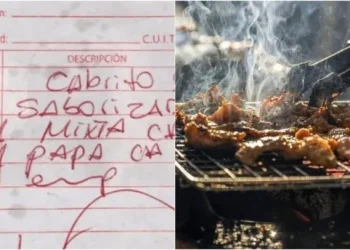 C.U.I.T
DESCRIPCIÓN
CABRITO
SABORIZA
MIXTA
PAPA CA
emp